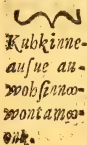 Kuhkinne-
ausue au-
wohsinnꝏ-
wontamꝏ-
onk.